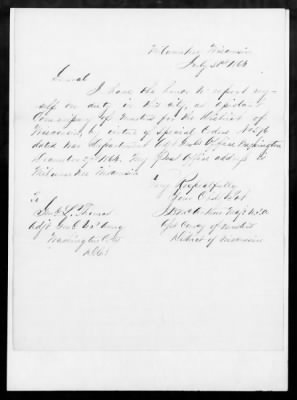 Milwaukee Wisconsin
July 30th 1864
General
I have the honor to report my-
self on duty in this city, as Assistant
Commissary of Musters for the District of
Wisconsin, by virtue of Special Orders No
dated War Department Adjt Genls Office Washington
1864. My Post Office address is
Milwaukee Wisconsin
Very Respectfully
Your Obdt Servt
To
Genl L. Thomas
Adjt Genl U.S. Army
Washington City
D.C.
Maj
Comsy of Musters
District of Wisconsin